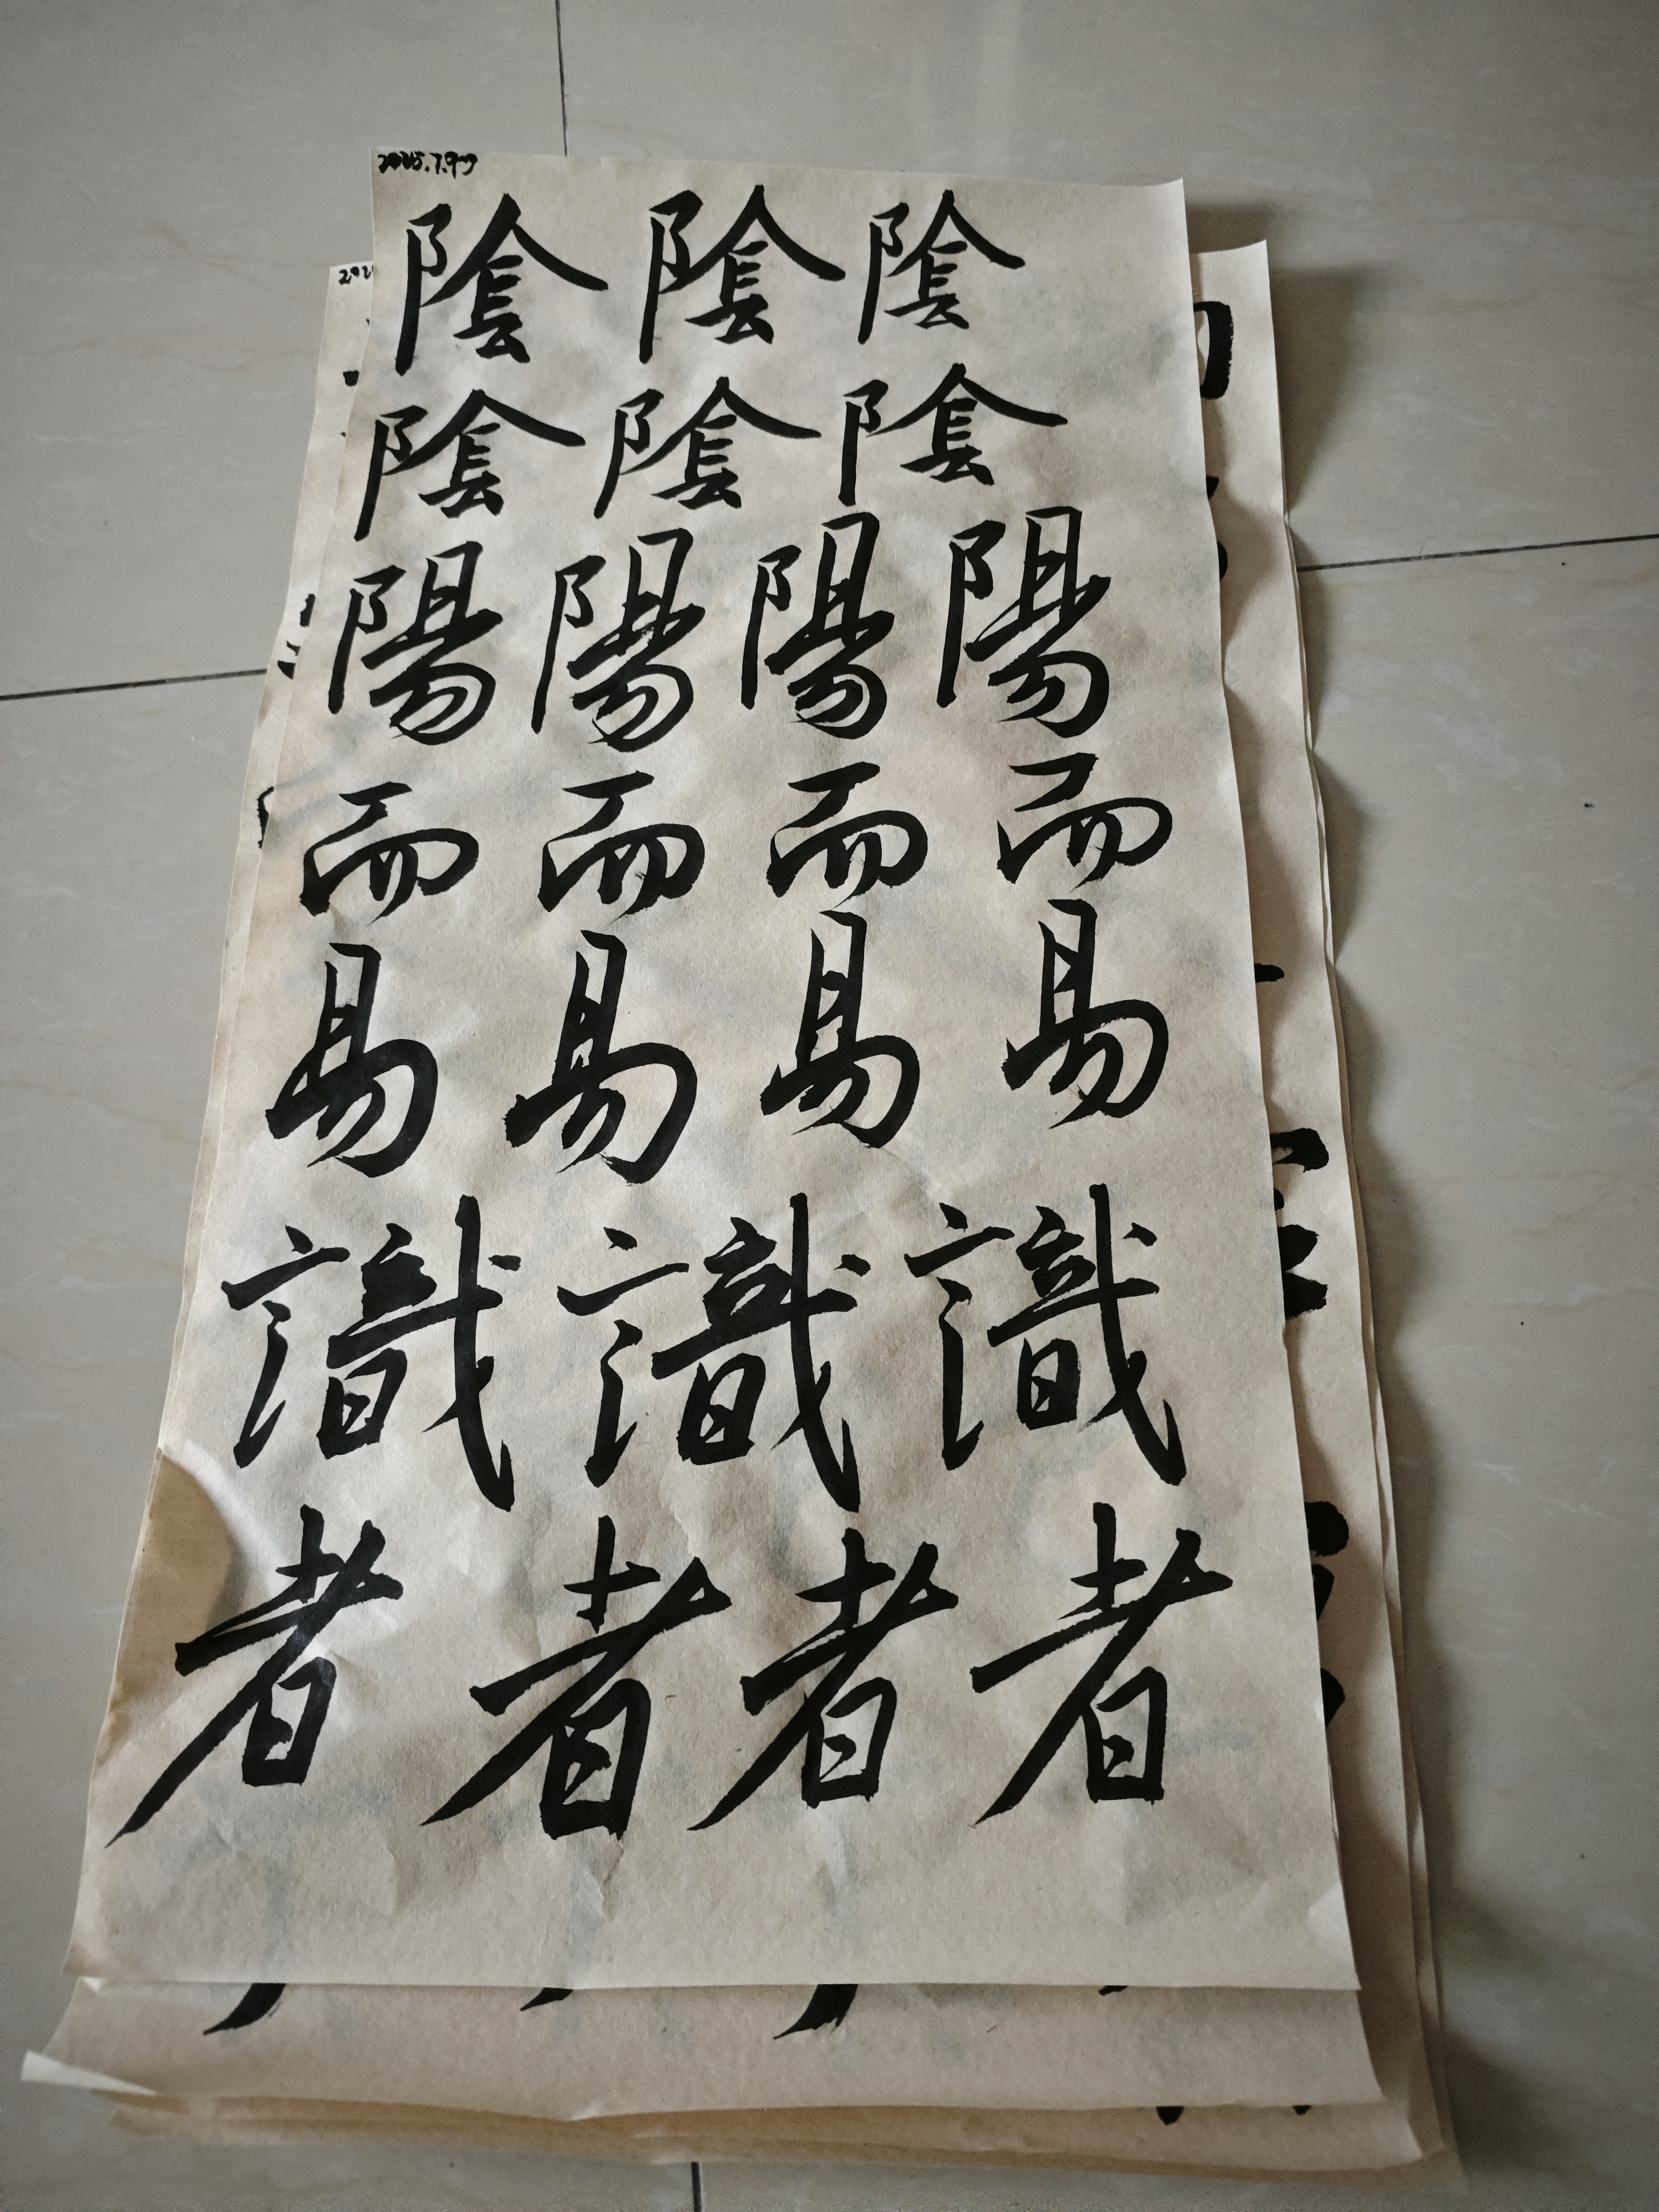 2025.7.9
陰陰陰
陰陰陰
陽陽陽陽
而而而而
易易易易
識識識
者者者者